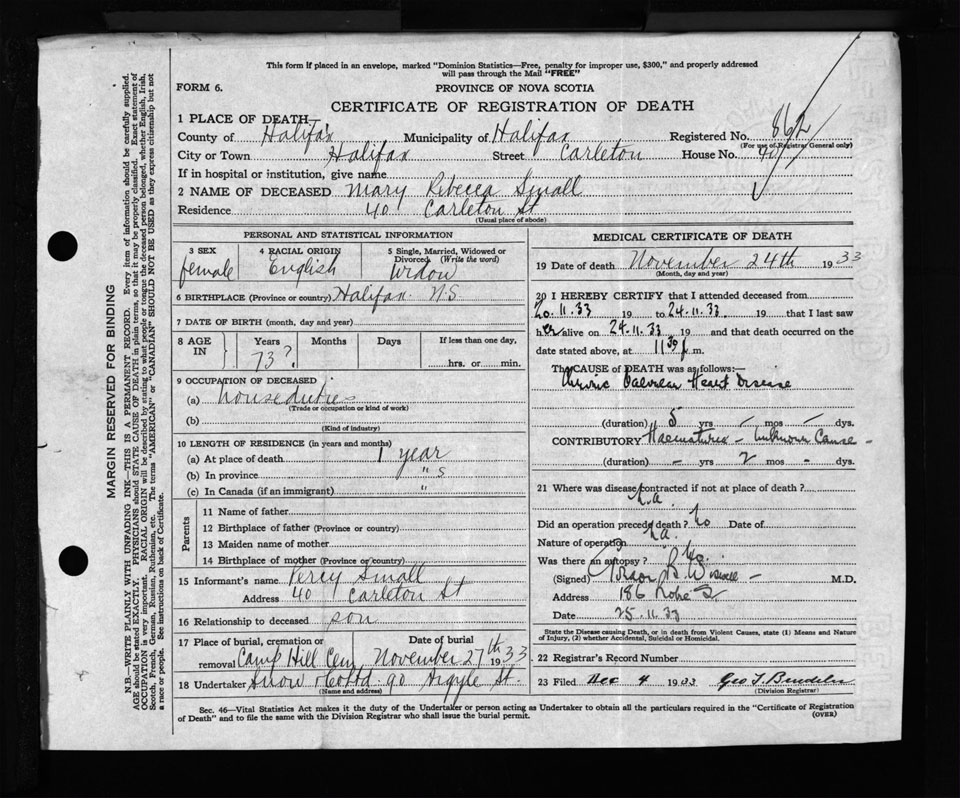 This form if placed in an envelope, marked "Dominion Statistics—Free, penalty for improper use, $300," and properly addressed
will pass through the Mail "FREE"
FORM 6. PROVINCE OF NOVA SCOTIA
CERTIFICATE OF REGISTRATION OF DEATH
1 PLACE OF DEATH—
County of Halifax Municipality of Halifax Registered No. 862
(For use of Registrar General only)
City or Town Halifax Street Carleton House No. 40
If in hospital or institution, give name
2 NAME OF DECEASED Mary Rebecca Small
Residence 40 Carleton St
(Usual place of abode)
PERSONAL AND STATISTICAL INFORMATION
3 SEX 4 RACIAL ORIGIN 5 Single, Married, Widowed or
Divorced (Write the word)
female English Widow
6 BIRTHPLACE (Province or country) Halifax N.S.
7 DATE OF BIRTH (month, day and year)
8 AGE IN Years Months Days If less than one day,
73? hrs. or min.
9 OCCUPATION OF DECEASED
(a) house duties
(Trade or occupation or kind of work)
(b)
(Kind of industry)
10 LENGTH OF RESIDENCE (in years and months)
(a) At place of death 1 year
(b) In province " s
(c) In Canada (if an immigrant) "
Parents
11 Name of father
12 Birthplace of father (Province or country)
13 Maiden name of mother
14 Birthplace of mother (Province or country)
15 Informant's name Percy Small
Address 40 Carleton St
16 Relationship to deceased son
17 Place of burial, cremation or Date of burial
removal Camp Hill Cem November 27th 1933
18 Undertaker Snow & Co Ltd 90 Argyle St.
(Name and address)
MEDICAL CERTIFICATE OF DEATH
19 Date of death November 24th 1933
(Month, day and year)
20 I HEREBY CERTIFY that I attended deceased from
20.11.33 19 to 24.11.33 19 that I last saw
her alive on 24.11.33 19 and that death occurred on the
date stated above, at 11 30 p m.
The CAUSE of DEATH was as follows:—
Chronic Valvular Heart Disease
(duration) 5 yrs — mos — dys.
CONTRIBUTORY Haematuria — Unknown Cause —
(duration) — yrs 2 mos — dys.
21 Where was disease contracted if not at place of death?
n.a.
Did an operation precede death? No Date of
Nature of operation na.
Was there an autopsy? No
(Signed) B. Wiswell — M.D.
Address 186 St
Date 25.11.33
State the Disease causing Death, or in death from Violent Causes, state (1) Means and Nature
of Injury, (2) whether Accidental, Suicidal or Homicidal.
22 Registrar's Record Number
23 Filed Dec 4 1933 Geo T.
(Division Registrar)
Sec. 46—Vital Statistics Act makes it the duty of the Undertaker or person acting as Undertaker to obtain all the particulars required in the "Certificate of Registration
of Death" and to file the same with the Division Registrar who shall issue the burial permit. (OVER)
MARGIN RESERVED FOR BINDING
N.B.—WRITE PLAINLY WITH UNFADING INK—THIS IS A PERMANENT RECORD. Every item of information should be carefully supplied.
AGE should be stated EXACTLY. PHYSICIANS should STATE CAUSE OF DEATH in plain terms, so that it may be properly classified. Exact statement of
OCCUPATION is very important. RACIAL ORIGIN will be described by stating to what people or tongue the deceased person belonged, whether English, Irish,
Scotch, French, German, Russian, Ruthenian, etc. The terms "AMERICAN" or "CANADIAN" SHOULD NOT BE USED as they express citizenship but not
a race or people. See instructions on back of Certificate.